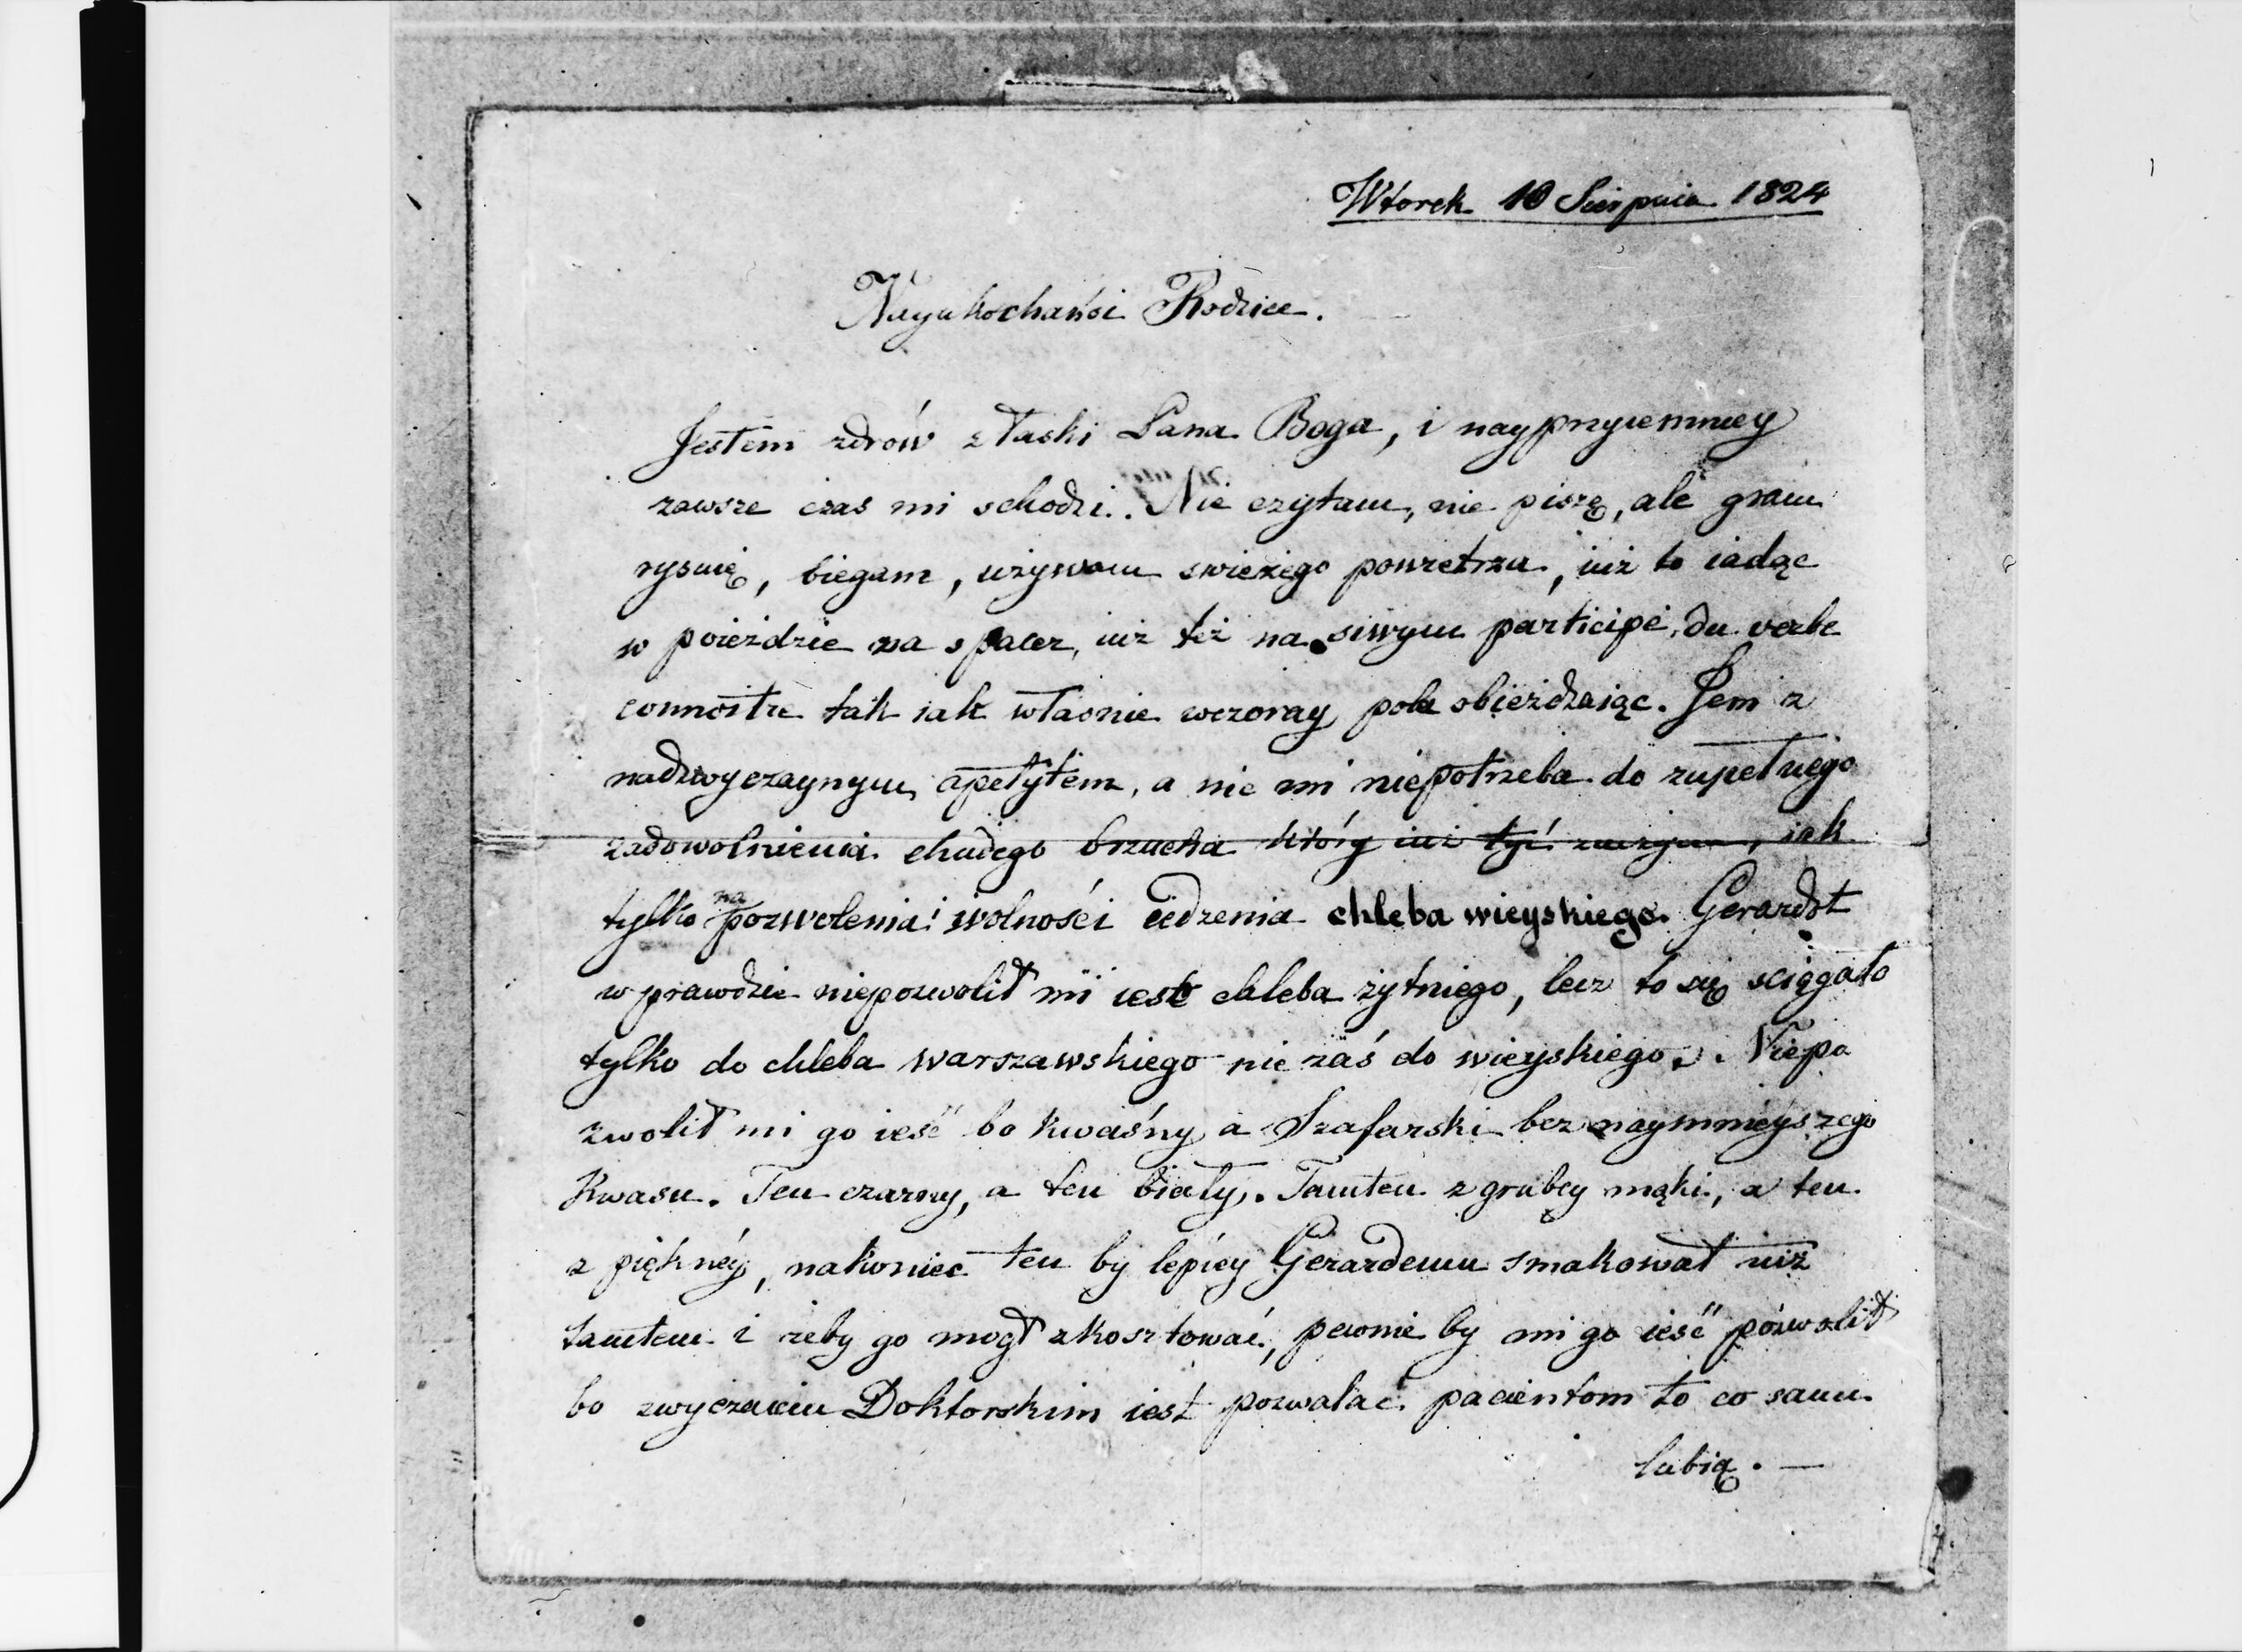 Wtorek 10 Sierpnia 1824
Nayukochańsi Rodzice.
Jestem zdrów z łaski Pana Boga, i nayprzyiemniey
zawsze czas mi schodzi. Nie czytam, nie piszę, ale gram
rysuię, biegam, używam swieżego powietrza, iuż to iadąc
w poieździe na spacer, iuż też na siwym participe du verbe
connoitre tak iak własnie wczoray pola obieżdzaiąc. Jem z
nadzwyczaynym apetytem, a nic mi niepotrzeba do zupełnego
zadowolnienia chudego brzucha który iuż tyć zaczyna, iak
tylko na pozwolenia i wolności iedzenia chleba wieyskiego. Gerardot
w prawdzie niepozwolił mi iesć chleba żytniego, lecz to się sciągało
tylko do chleba warszawskiego nie zaś do wieyskiego. Niepo
zwolił mi go ieść bo kwaśny, a Szafarski bez naymnieyszego
kwasu. Ten czarny, a ten biały. Tamten z grubey mąki, a ten
z piękney, nakoniec ten by lepiey Gerardemu smakował niż
tamten i żeby go mogł zkosztować, pewnie by mi go ieść pozwolił
bo zwyczaiem Doktorskim iest pozwalać pacientom to co sami
lubią. —